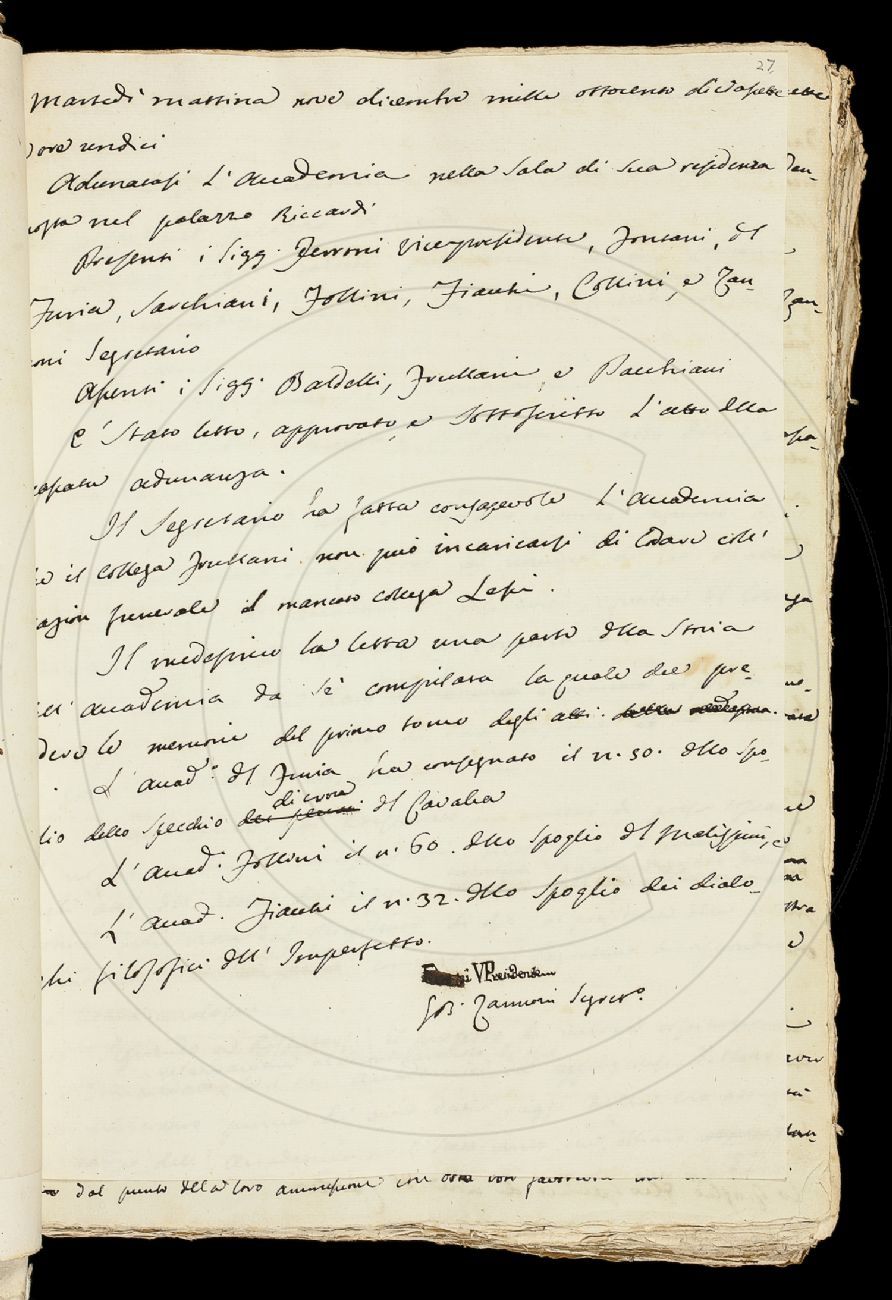 27.
Martedì mattina nove dicembre mille ottocento diciassette
ore undici
Adunatasi L'Accademia nella Sala di sua residenza
nel palazzo Riccardi
Presenti i Sigg. Ferroni Vicepresidente, Fontani, del
Furia, Sarchiani, Follini, Fiacchi, Collini, e Zan-
oni Segretario
Assenti i Sigg. Baldelli, Frullani, e Pacchiani
È stato letto, approvato, e sottoscritto L'atto della
passata adunanza.
Il Segretario ha fatta consapevole L'Accademia
il Collega Frullani non può incaricarsi di lodare coll'
azion funerale il mancato collega Lessi.
Il medesimo ha letta una parte della Storia
dell'Accademia da sè compilata la quale dee pre-
dere le memorie del primo tomo degli atti.
L'Accad.o del Furia ha consegnato il n. 30. dello Spo-
lio dello Specchio di croce del Cavalca
L'Accad. Follini il n. 60. dello Spoglio del
L'Accad. Fiacchi il n. 32. dello Spoglio dei dialo-
ghi filosofici dell'Imperfetto.
VPresidente
GB. Zannoni Segret.o
dal punto della loro ammissione